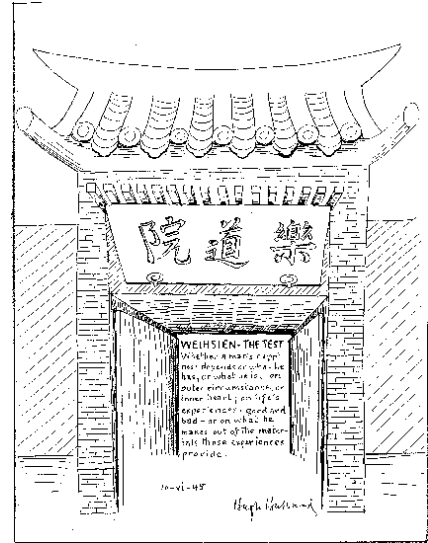 院道樂
WEIHSIEN - THE TEST
Whether a man's happi
ness depends on what he
has, or what he is; on
outer circumstance, or
inner heart; on life's
experiences - good and
bad - or on what he
makes out of the mater-
ials those experiences
provide.
10-vi-45
Hugh